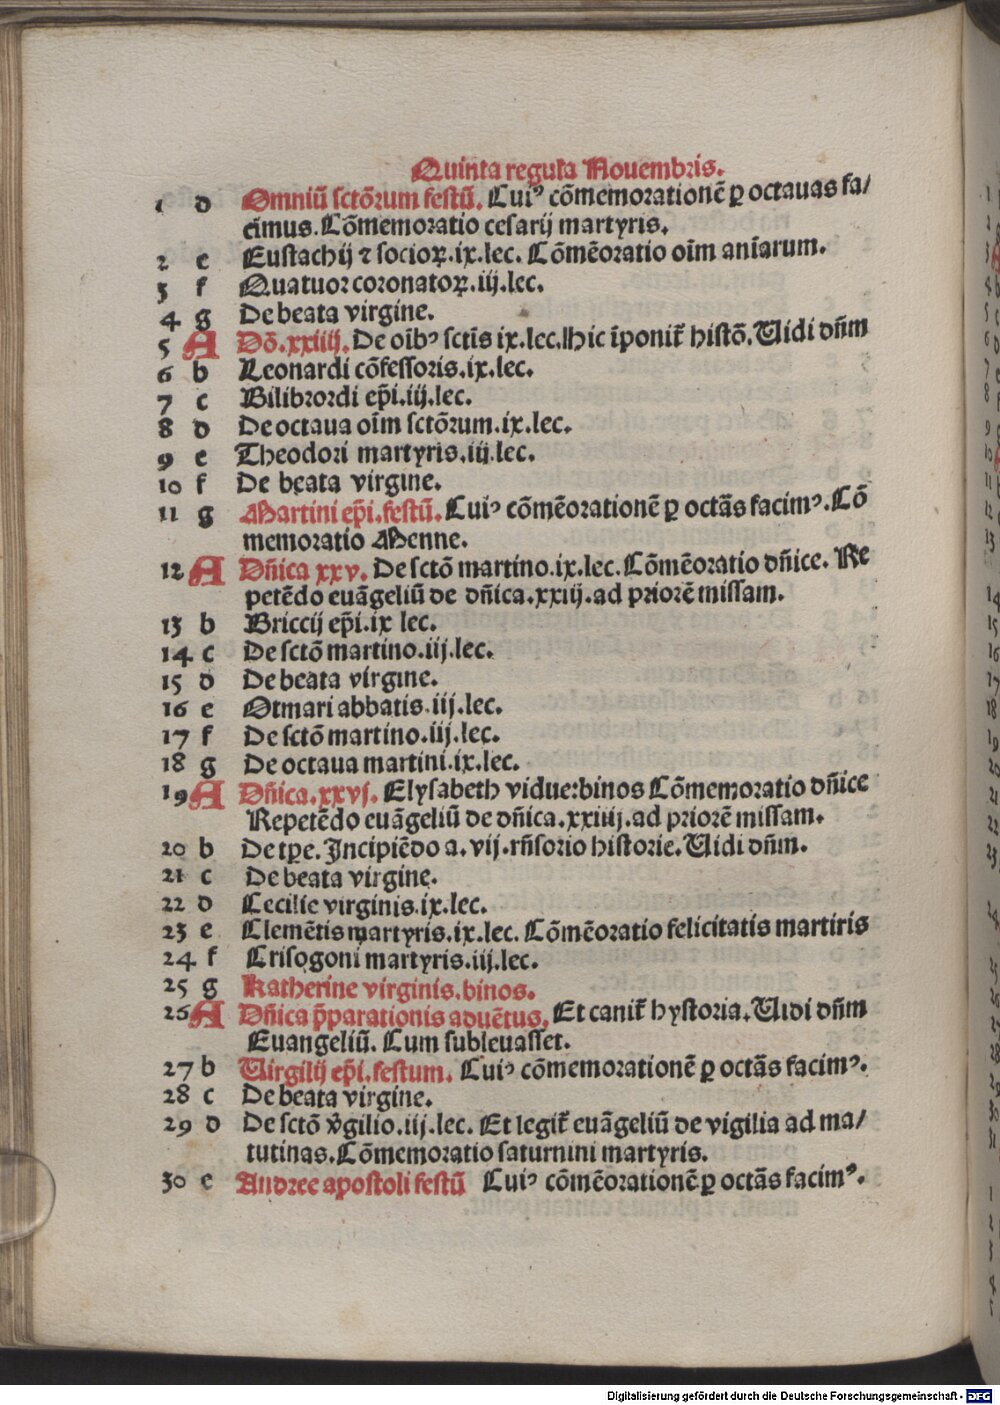 Quinta regula Nouembris.
1 d Omniū sctõrum festū. Cuiꝰ cõmemorationē ꝑ octauas fa/
cimus. Cõmemoratio cesarij martyris.
2 e Eustachij ⁊ socioꝝ.ix.lec. Cõmēoratio oīm aniārum.
3 f Quatuor coronatoꝝ.iij.lec.
4 g De beata virgine.
5 A Dõ.xxiiij. De oībꝰ sctīs ix.lec. Hic īponit᷑ histõ. Uidi dn̄m
6 b Leonardi cõfessoris.ix.lec.
7 c Bilibrordi ep̄i.iij.lec.
8 d De octaua oīm sctõrum.ix.lec.
9 e Theodori martyris.iij.lec.
10 f De beata virgine.
11 g Martini ep̄i.festū. Cuiꝰ cõmēorationē ꝑ octãs facimꝰ. Cõ
memoratio Menne.
12 A Dn̄ica xxv. De sctõ martino.ix.lec. Cõmēoratio dn̄ice. Re
petēdo euãgeliū de dn̄ica.xxiij.ad priorē missam.
13 b Briccij ep̄i.ix lec.
14 c De sctõ martino.iij.lec.
15 d De beata virgine.
16 e Otmari abbatis.iij.lec.
17 f De sctõ martino.iij.lec.
18 g De octaua martini.ix.lec.
19 A Dn̄ica.xxvj. Elysabeth vidue:binos Cõmemoratio dn̄ice
Repetēdo euãgeliū de dn̄ica.xxiiij.ad priorē missam.
20 b De tp̄e. Incipiēdo a.vij.rn̄sorio historie. Uidi dn̄m.
21 c De beata virgine.
22 d Cecilie virginis.ix.lec.
23 e Clemētis martyris.ix.lec. Cõmēoratio felicitatis martiris
24 f Crisogoni martyris.iij.lec.
25 g Katherine virginis.binos.
26 A Dn̄ica p̄parationis aduētus. Et canit᷑ hystoria. Uidi dn̄m
Euangeliū. Cum subleuasset.
27 b Uirgilij ep̄i.festum. Cuiꝰ cõmemorationē ꝑ octãs facimꝰ.
28 c De beata virgine.
29 d De sctõ v̄gilio.iij.lec. Et legit᷑ euãgeliū de vigilia ad ma/
tutinas. Cõmemoratio saturnini martyris.
30 e Andree apostoli festū Cuiꝰ cõmēorationē ꝑ octãs facimꝰ.
Digitalisierung gefördert durch die Deutsche Forschungsgemeinschaft - DFG